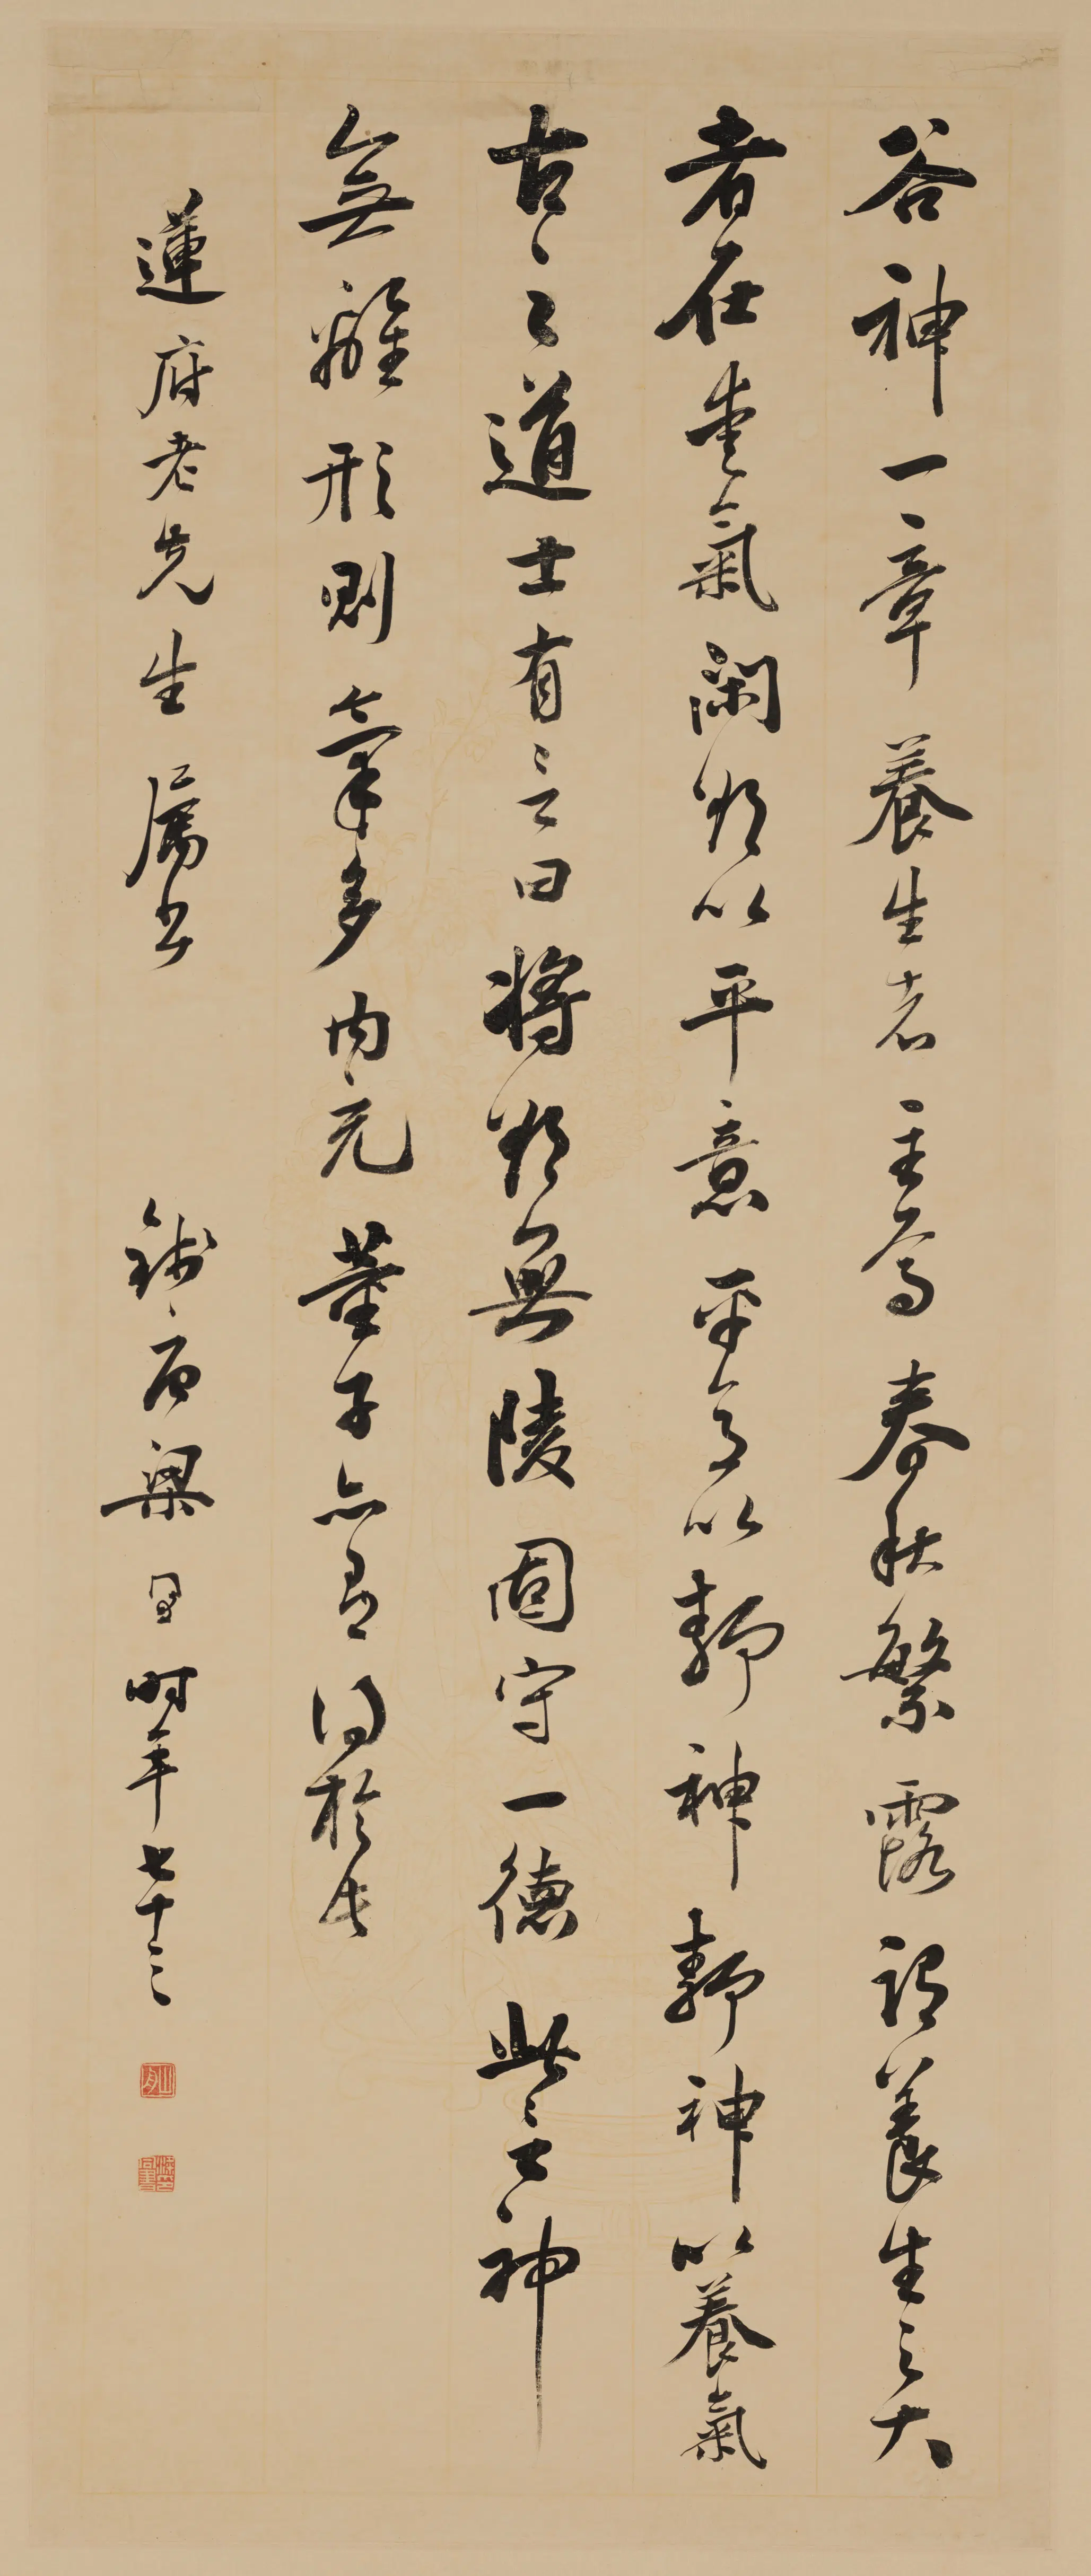 谷神一章養生者主焉春秋繁露謂養生之大
者在愛氣閑欲以平意平意以靜神靜神以養氣
古之道士有言曰將欲無陵固守一德此言神
無離形則氣多內充董子亦有得於此
蓮府老先生屬書
錢唐梁同書時年七十三
山舟
梁同書